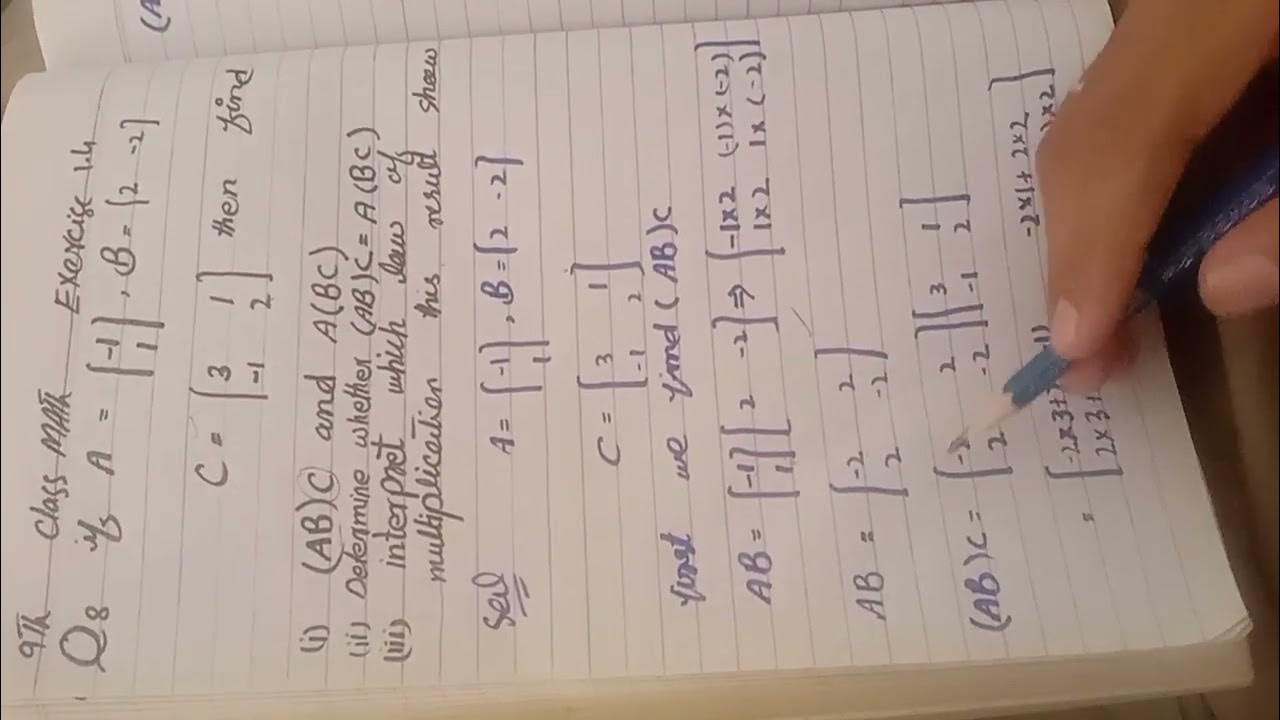 (A
9Th Class MATH Exercise 1.4
Q8 if A = [-1 1], B = [2 -2]
C = [3 1 -1 2] then find
(i) (AB)C and A(BC)
(ii) Determine whether (AB)C = A(BC)
(iii) interpret which law of
multiplication this result show
Sol A = [-1 1], B = [2 -2]
C = [3 1 -1 2]
first we find (AB)C
AB = [-1 1][2 -2] ⇒ [-1x2 (-1)x(-2) 1x2 1x(-2)]
AB = [-2 2 2 -2]
(AB)C = [-2 2 2 -2][3 1 -1 2]
= [-2x3+ -2x1+2x2
2x3+ x2]